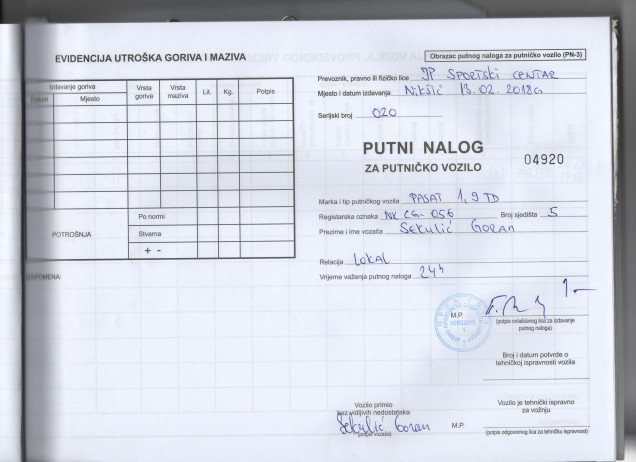 EVIDENCIJA UTROŠKA GORIVA I MAZIVA
Izdavanje goriva
Mjesto
Vrsta goriva
Vrsta maziva
Lit.
Kg.
Potpis
POTROŠNJA
Po normi
Stvarna
+ -
NAPOMENA:
Obrazac putnog naloga za putničko vozilo (PN-3)
Prevoznik, pravno ili fizičko lice JP SPORTSKI CENTAR
Mjesto i datum izdavanja Nikšić 13.02.2018G
Serijski broj 020
PUTNI NALOG
ZA PUTNIČKO VOZILO
04920
Marka i tip putničkog vozila PASAT 1,9 TD
Registarska oznaka NK CG-056 Broj sjedišta 5
Prezime i ime vozača SEKULIĆ GORAN
Relacija LOKAL
Vrijeme važenja putnog naloga 24h
M.P.
(potpis ovlašćenog lica za izdavanje
putnog naloga)
Broj i datum potvrde o
tehničkoj ispravnosti vozila
Vozilo primio
bez vidljivih nedostataka
Sekulić Goran
(potpis vozača)
M.P.
Vozilo je tehnički ispravno
za vožnju
(potpis odgovornog lica za tehničku ispravnost)